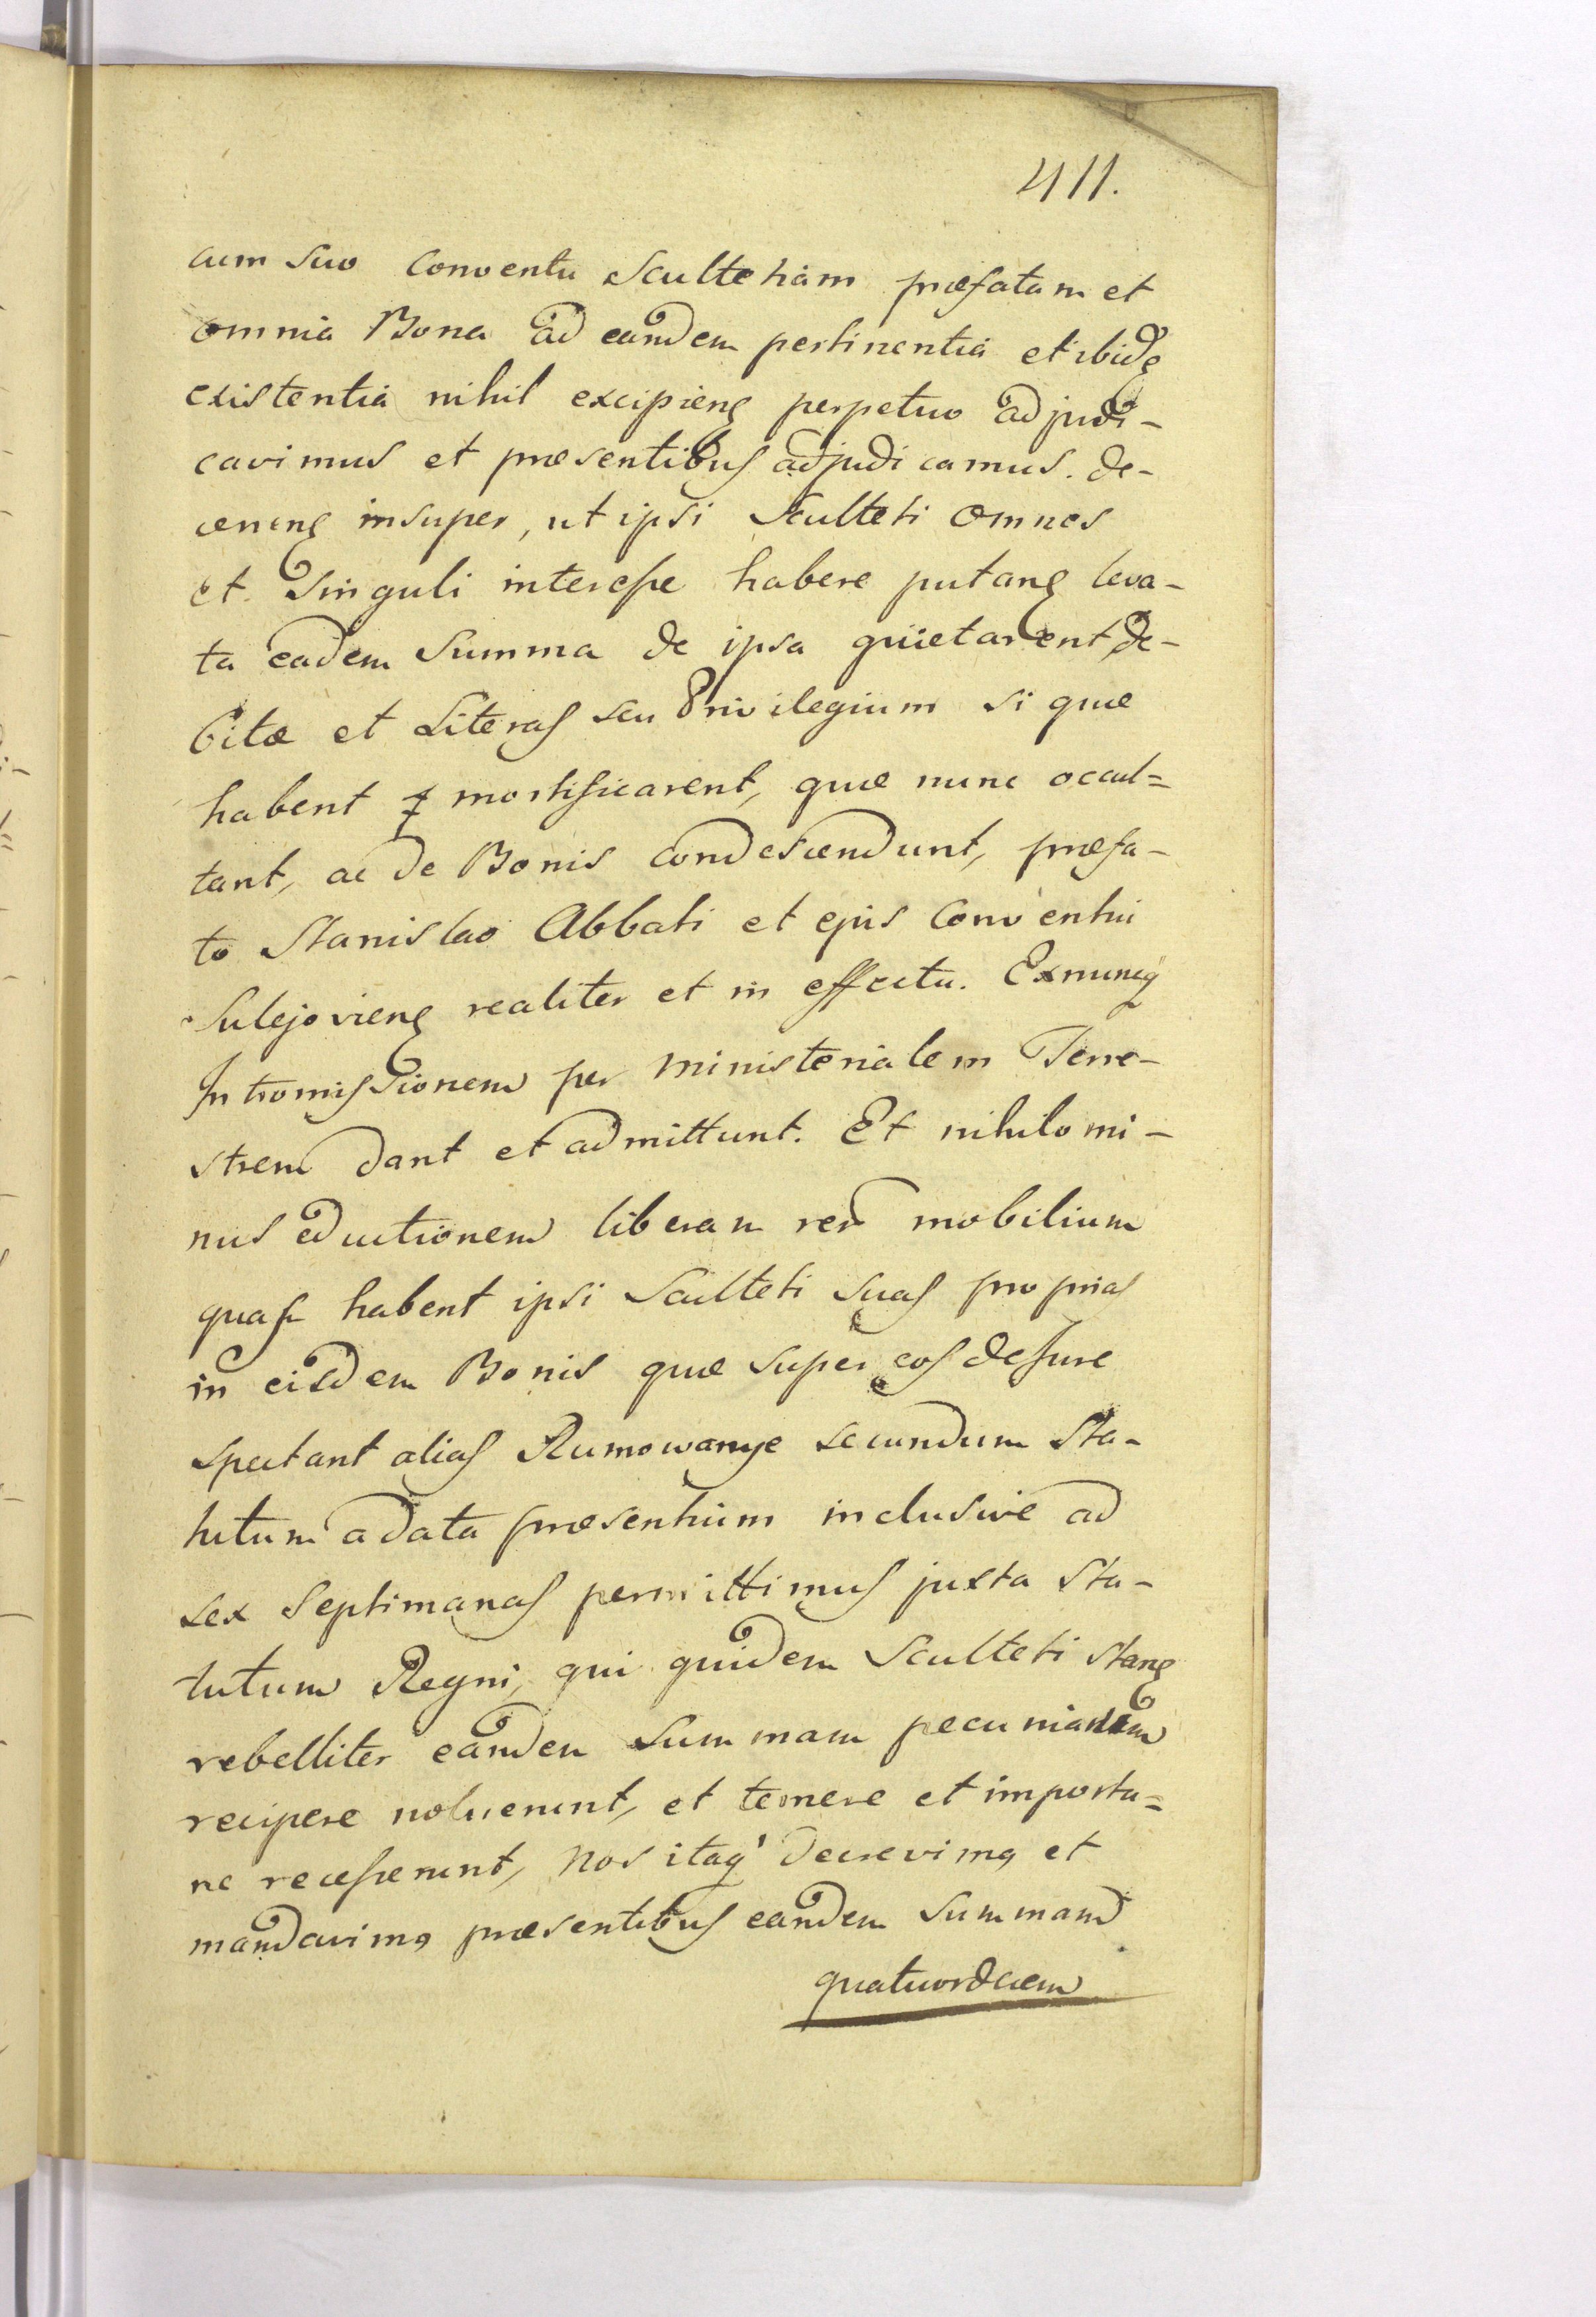 411.
cum suo Conventu Scultetiam præfatam et
omnia Bona ad eandem pertinentia et ibidę
existentia nihil excipienę perpetuo adjudi-
cavimus et præsentibus adjudicamus. de-
cernenę insuper, ut ipsi Sculteti omnes
et singuli interesse habere putanę leva-
ta eadem summa de ipsa quietarent de-
bitæ et Literas seu Privilegium si quæ
habent mortificarent, quæ nunc occul=
tant, ac de Bonis condescendunt, præfa-
to Stanislao Abbati et ejus Conventui
Sulejovienę realiter et in effectu. Exnuncq
Intromissionem per ministerialem Terre-
strem dant et admittunt. Et nihilomi-
nus eductionem liberam rer mobilium
quas habent ipsi Sculteti suas proprias
in eisdem Bonis quæ super eos de Jure
spectant alias Rumowanye secundum Sta-
tutum a data præsentium inclusive ad
sex Septimanas permittimus juxta Sta-
tutum Regni, qui quidem Sculteti stanę
rebelliter eandem summam pecuniariam
recipere noluerunt, et temere et importu=
ne recesserunt, Nos itaq' decrevimꝯ et
mandavimꝯ præsentibus eandem summam
quatuordecem